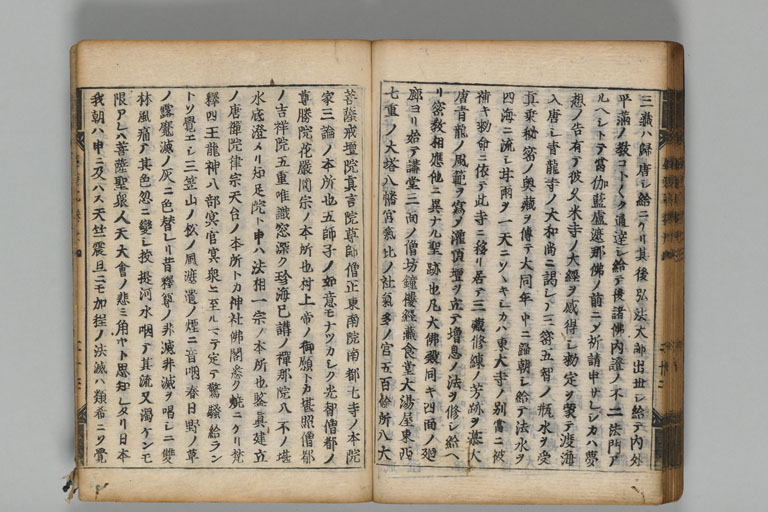 三藏ハ歸唐シ給ニケリ其後弘法大師出世シ給テ内外
平滿ノ教コトコトク通達シ給テ後諸佛内證ノ不二法門ア
ルヘシトテ當伽藍盧遮那佛ノ前ニシテ祈請申サレシカハ夢
想ノ告有テ彼久米寺ノ大經ヲ感得シ勅定ヲ蒙テ渡海
入唐シ青龍寺ノ大和尚ニ謁シテ三密五智ノ瓶水ヲ受
真乗秘密ノ奥藏ヲ傳テ大同年中ニ歸朝シ給テ法水ヲ
四海ニ流シ甘雨ヲ一天ニソソキシカハ東大寺ノ別當ニ被
補キ勅命ニ依テ此寺ニ移リ居テ三藏修練ノ芳跡ヲ
唐青龍ノ風範ヲ寫シ灌頂壇ヲ立テ増息ノ法ヲ修シ給ヘ
リ密教相應他ニ異ナル聖跡也凡大佛殿同キ四面ノ廻
廊ヨリ始テ講堂三面ノ僧坊鐘樓經藏食堂大湯屋東西
七重ノ大塔八幡宮氣比ノ社氣多ノ宮五百餘所八大
菩薩戒壇院真言院尊師僧正東南院南都七寺ノ本院
家三論ノ本所也五師子ノ如意モナツカシク光智僧都ノ
尊勝院花嚴圓宗ノ本所也村上帝ノ御願トカ甚照僧都
ノ吉祥院五重唯識窓深ク珍海已講ノ禪那院八不ノ
水底澄メリ知足院ト申ハ法相一宗ノ本所也鑒真建立
ノ唐禪院律宗天台ノ本所トカ神社佛閣悉ク燒ニケリ梵
釋四王龍神八部冥官冥衆ニ至ルマテ定テ驚騒給ラン
トソ覺エシ三笠山ノ松ノ風遮遣ノ煙ニ音咽春日野ノ草
ノ露魔滅ノ灰ニ色替レリ昔釋尊ノ非滅非滅ヲ唱シニ雙
林風痛テ其色忽ニ變シ抜提河水咽テ其流又濁ケンモ
限アレハ菩薩聖衆人天大會ノ悲ミ角ヤト思知レタリ日本
我朝ハ申ニ及ハス天竺震旦ニモ加程ノ法滅ハ類希ニソ覺